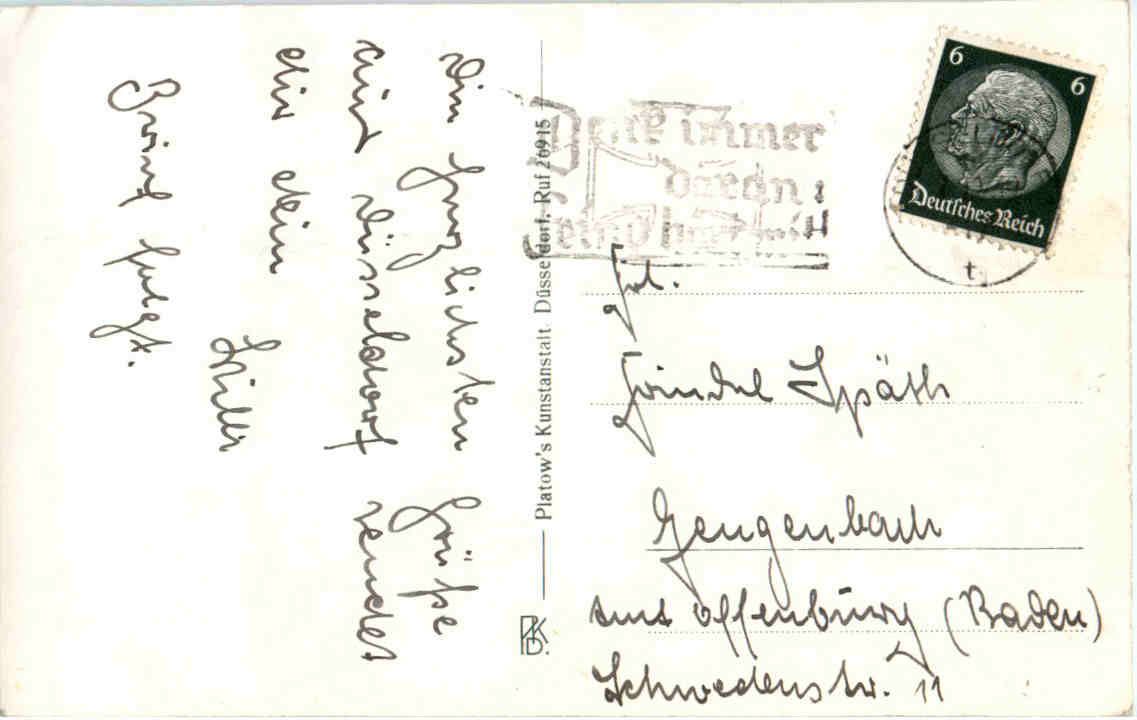 Die herzlichsten Grüße
aus Düsseldorf sendet
dir dein
Willi
Brief folgt.
Platow's Kunstanstalt. Düsseldorf. Ruf 26915
PKD.
Denk immer
daran:
Feind hört mit!
6 6
Deutsches Reich
t
Frl.
Friedel Späth
Gengenbach
Amt Offenburg (Baden)
Schwedenstr. 11